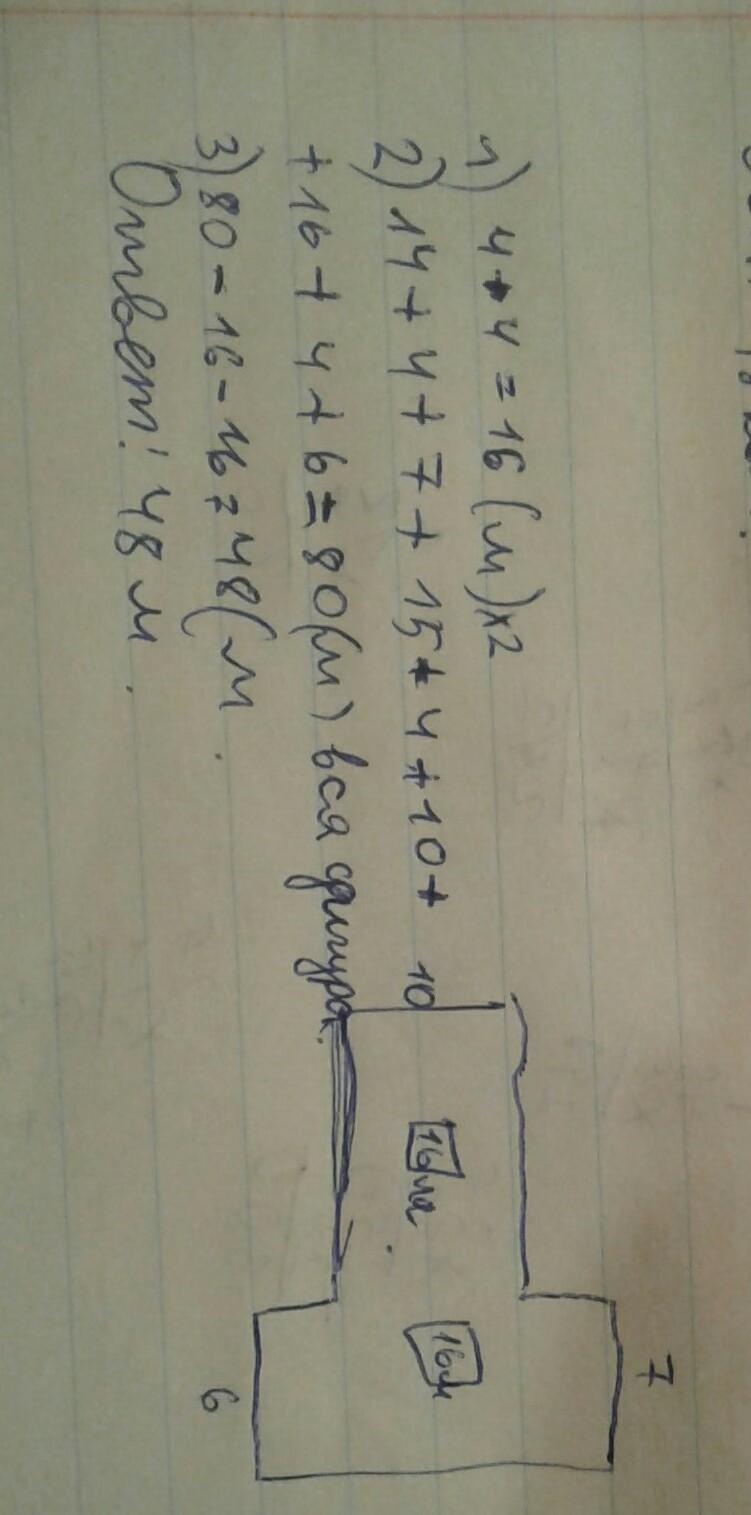 1) 4•4=16(м)х2
2) 14+4+7+15+4+10+
+16+4+6=80(м) вся фигура.
3) 80-16-16=48(м
Ответ: 48 м.
10
16м
16м
7
6